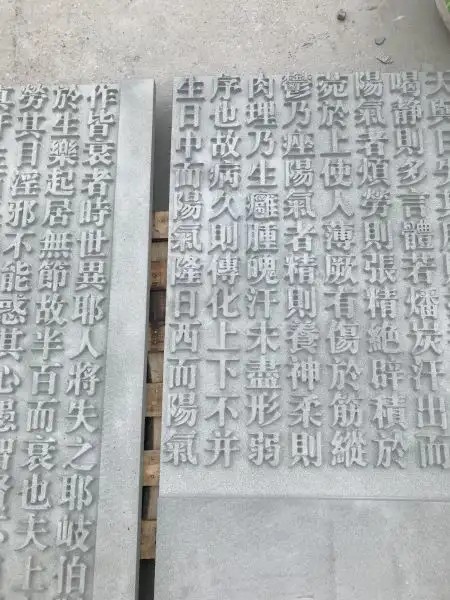 天與日失其
喝靜則多言體若燔炭汗出而
陽氣者煩勞則張精絕辟積於
菀於上使人薄厥有傷於筋縱
鬱乃痤陽氣者精則養神柔則
肉理乃生癰腫魄汗未盡形弱
序也故病久則傳化上下不并
生日中而陽氣隆日西而陽氣
作皆衰者時世異耶人將失之耶岐伯
於生樂起居無節故半百而衰也夫上
勞其目淫邪不能惑其心愚智賢不